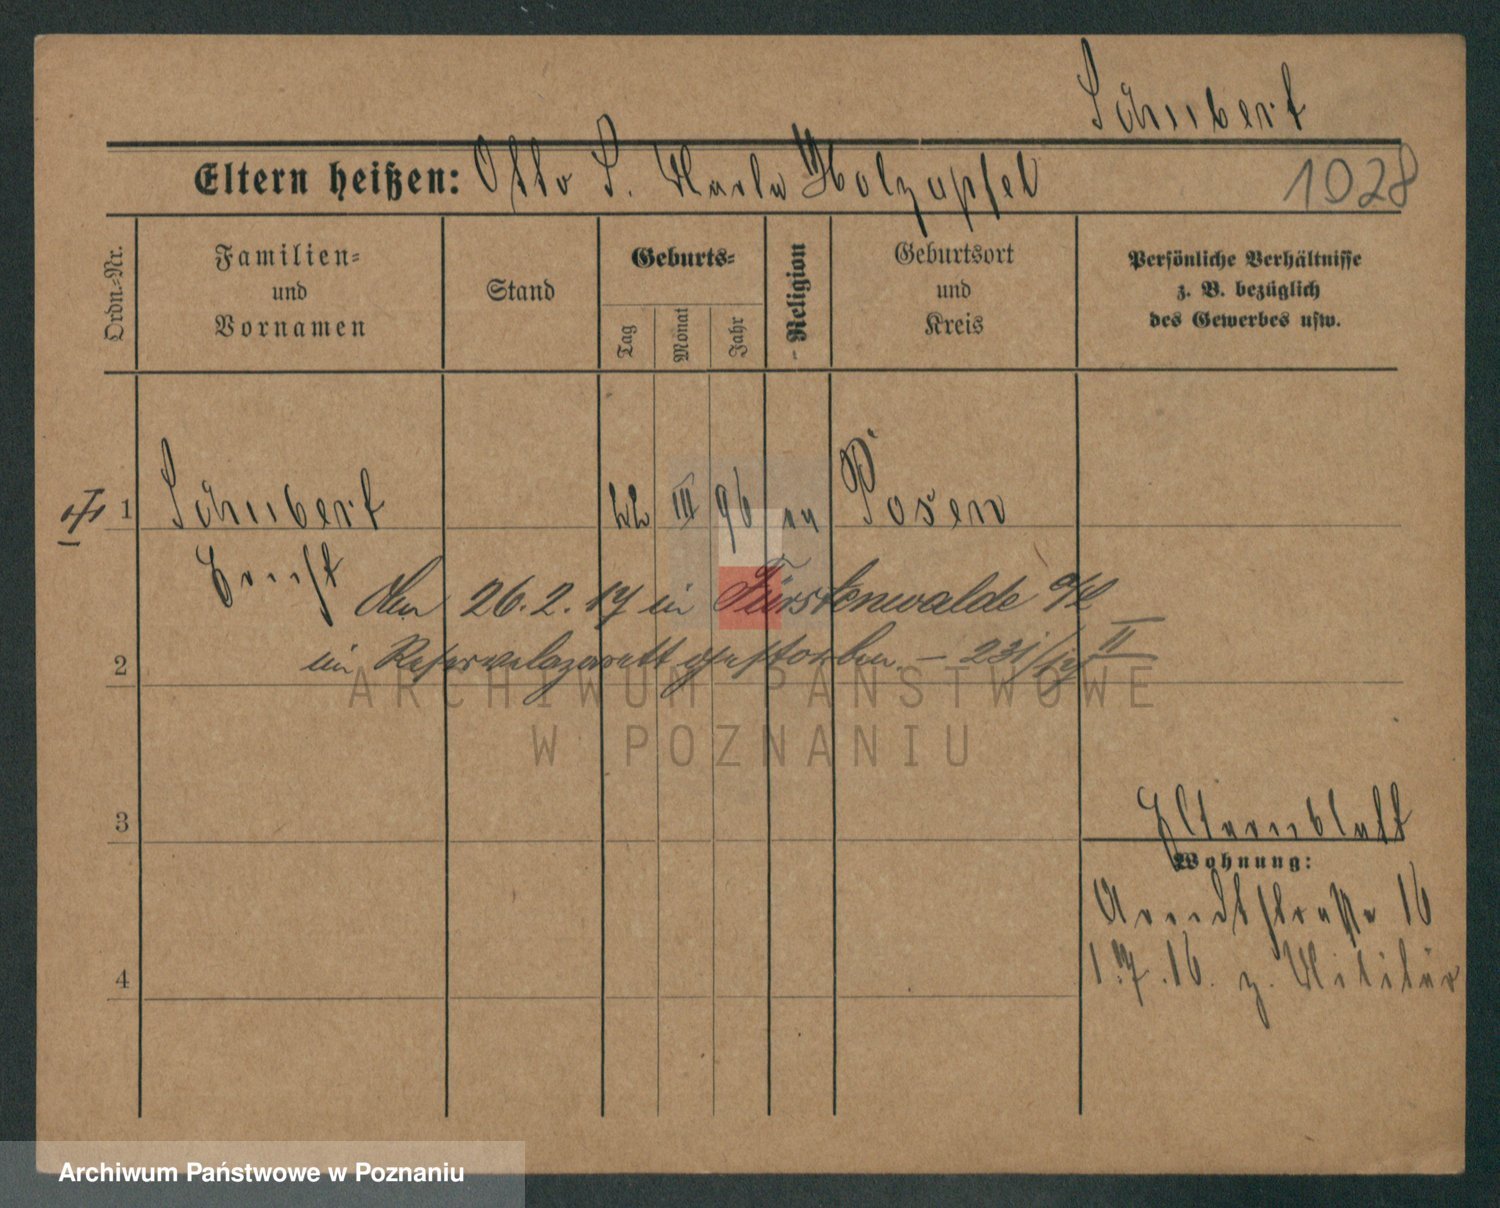 Schubert
Eltern heißen: Otto S. Maria Holzapfel
1028
Ordn.-Nr.
Familien-
und
Vornamen
Stand
Geburts-
Tag
Monat
Jahr
Religion
Geburtsort
und
Kreis
Persönliche Verhältnisse
z. B. bezüglich
des Gewerbes usw.
1 Schubert 22 III 96 Posen
Ernst
Am 26.2.17 in Fürstenwalde
2 im Reservelazarett gestorben. – 231/17 II
ARCHIWUM PAŃSTWOWE
W POZNANIU
3
Elternblatt
Wohnung:
Arndtstraße 16
4
1.7.16. z. Militär
Archiwum Państwowe w Poznaniu